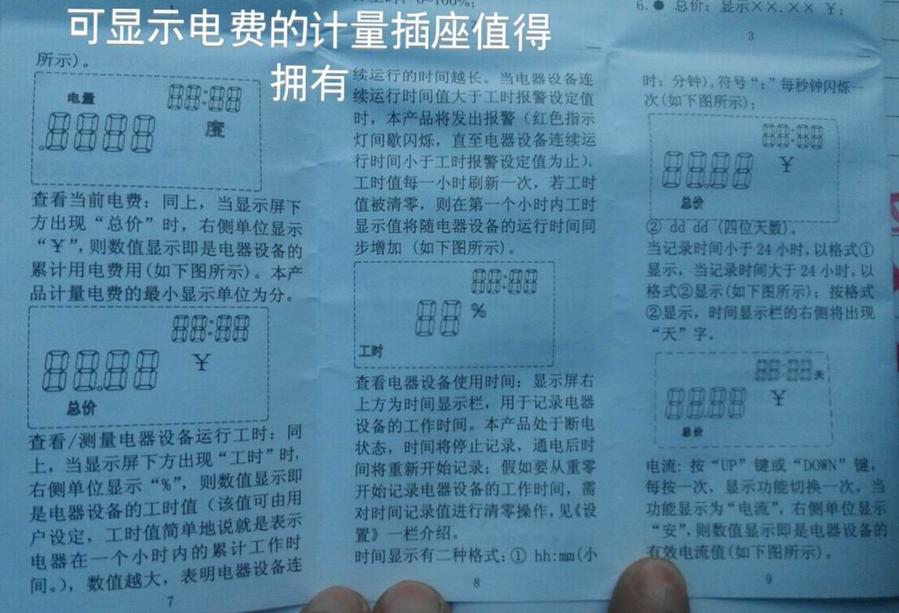 可显示电费的计量插座值得
拥有
6.● 总价：显示××.×× ¥；
3
所示)。
电量
88:88
8888
度
查看当前电费：同上，当显示屏下
方出现“总价”时，右侧单位显示
“¥”,则数值显示即是电器设备的
累计用电费用(如下图所示)。本产
品计量电费的最小显示单位为分。
88:88
88.88
¥
总价
查看/测量电器设备运行工时：同
上，当显示屏下方出现“工时”时，
右侧单位显示“%”，则数值显示即
是电器设备的工时值（该值可由用
户设定，工时值简单地说就是表示
电器在一个小时内的累计工作时
间。)，数值越大，表明电器设备连
7
续运行的时间越长。当电器设备连
续运行时间值大于工时报警设定值
时，本产品将发出报警（红色指示
灯间歇闪烁，直至电器设备连续运
行时间小于工时报警设定值为止)，
工时值每一小时刷新一次，若工时
值被清零，则在第一个小时内工时
显示值将随电器设备的运行时间同
步增加（如下图所示)。
88:88
88 %
工时
查看电器设备使用时间：显示屏右
上方为时间显示栏，用于记录电器
设备的工作时间。本产品处于断电
状态，时间将停止记录，通电后时
间将重新开始记录；假如要从重零
开始记录电器设备的工作时间，需
对时间记录值进行清零操作，见《设
置》一栏介绍。
时间显示有二种格式：① hh:mm(小
8
时：分钟)，符号“:”每秒钟闪烁一
次(如下图所示)；
88:88
88.88
¥
总价
② dd dd (四位天数)。
当记录时间小于24小时，以格式①
显示，当记录时间大于24小时，以
格式②显示(如下图所示)；按格式
②显示，时间显示栏的右侧将出现
“天”字。
88:88天
88.88
¥
总价
电流: 按“UP”键或“DOWN”键，
每按一次，显示功能切换一次，当
功能显示为“电流”，右侧单位显示
“安”，则数值显示即是电器设备的
有效电流值(如下图所示)。
9